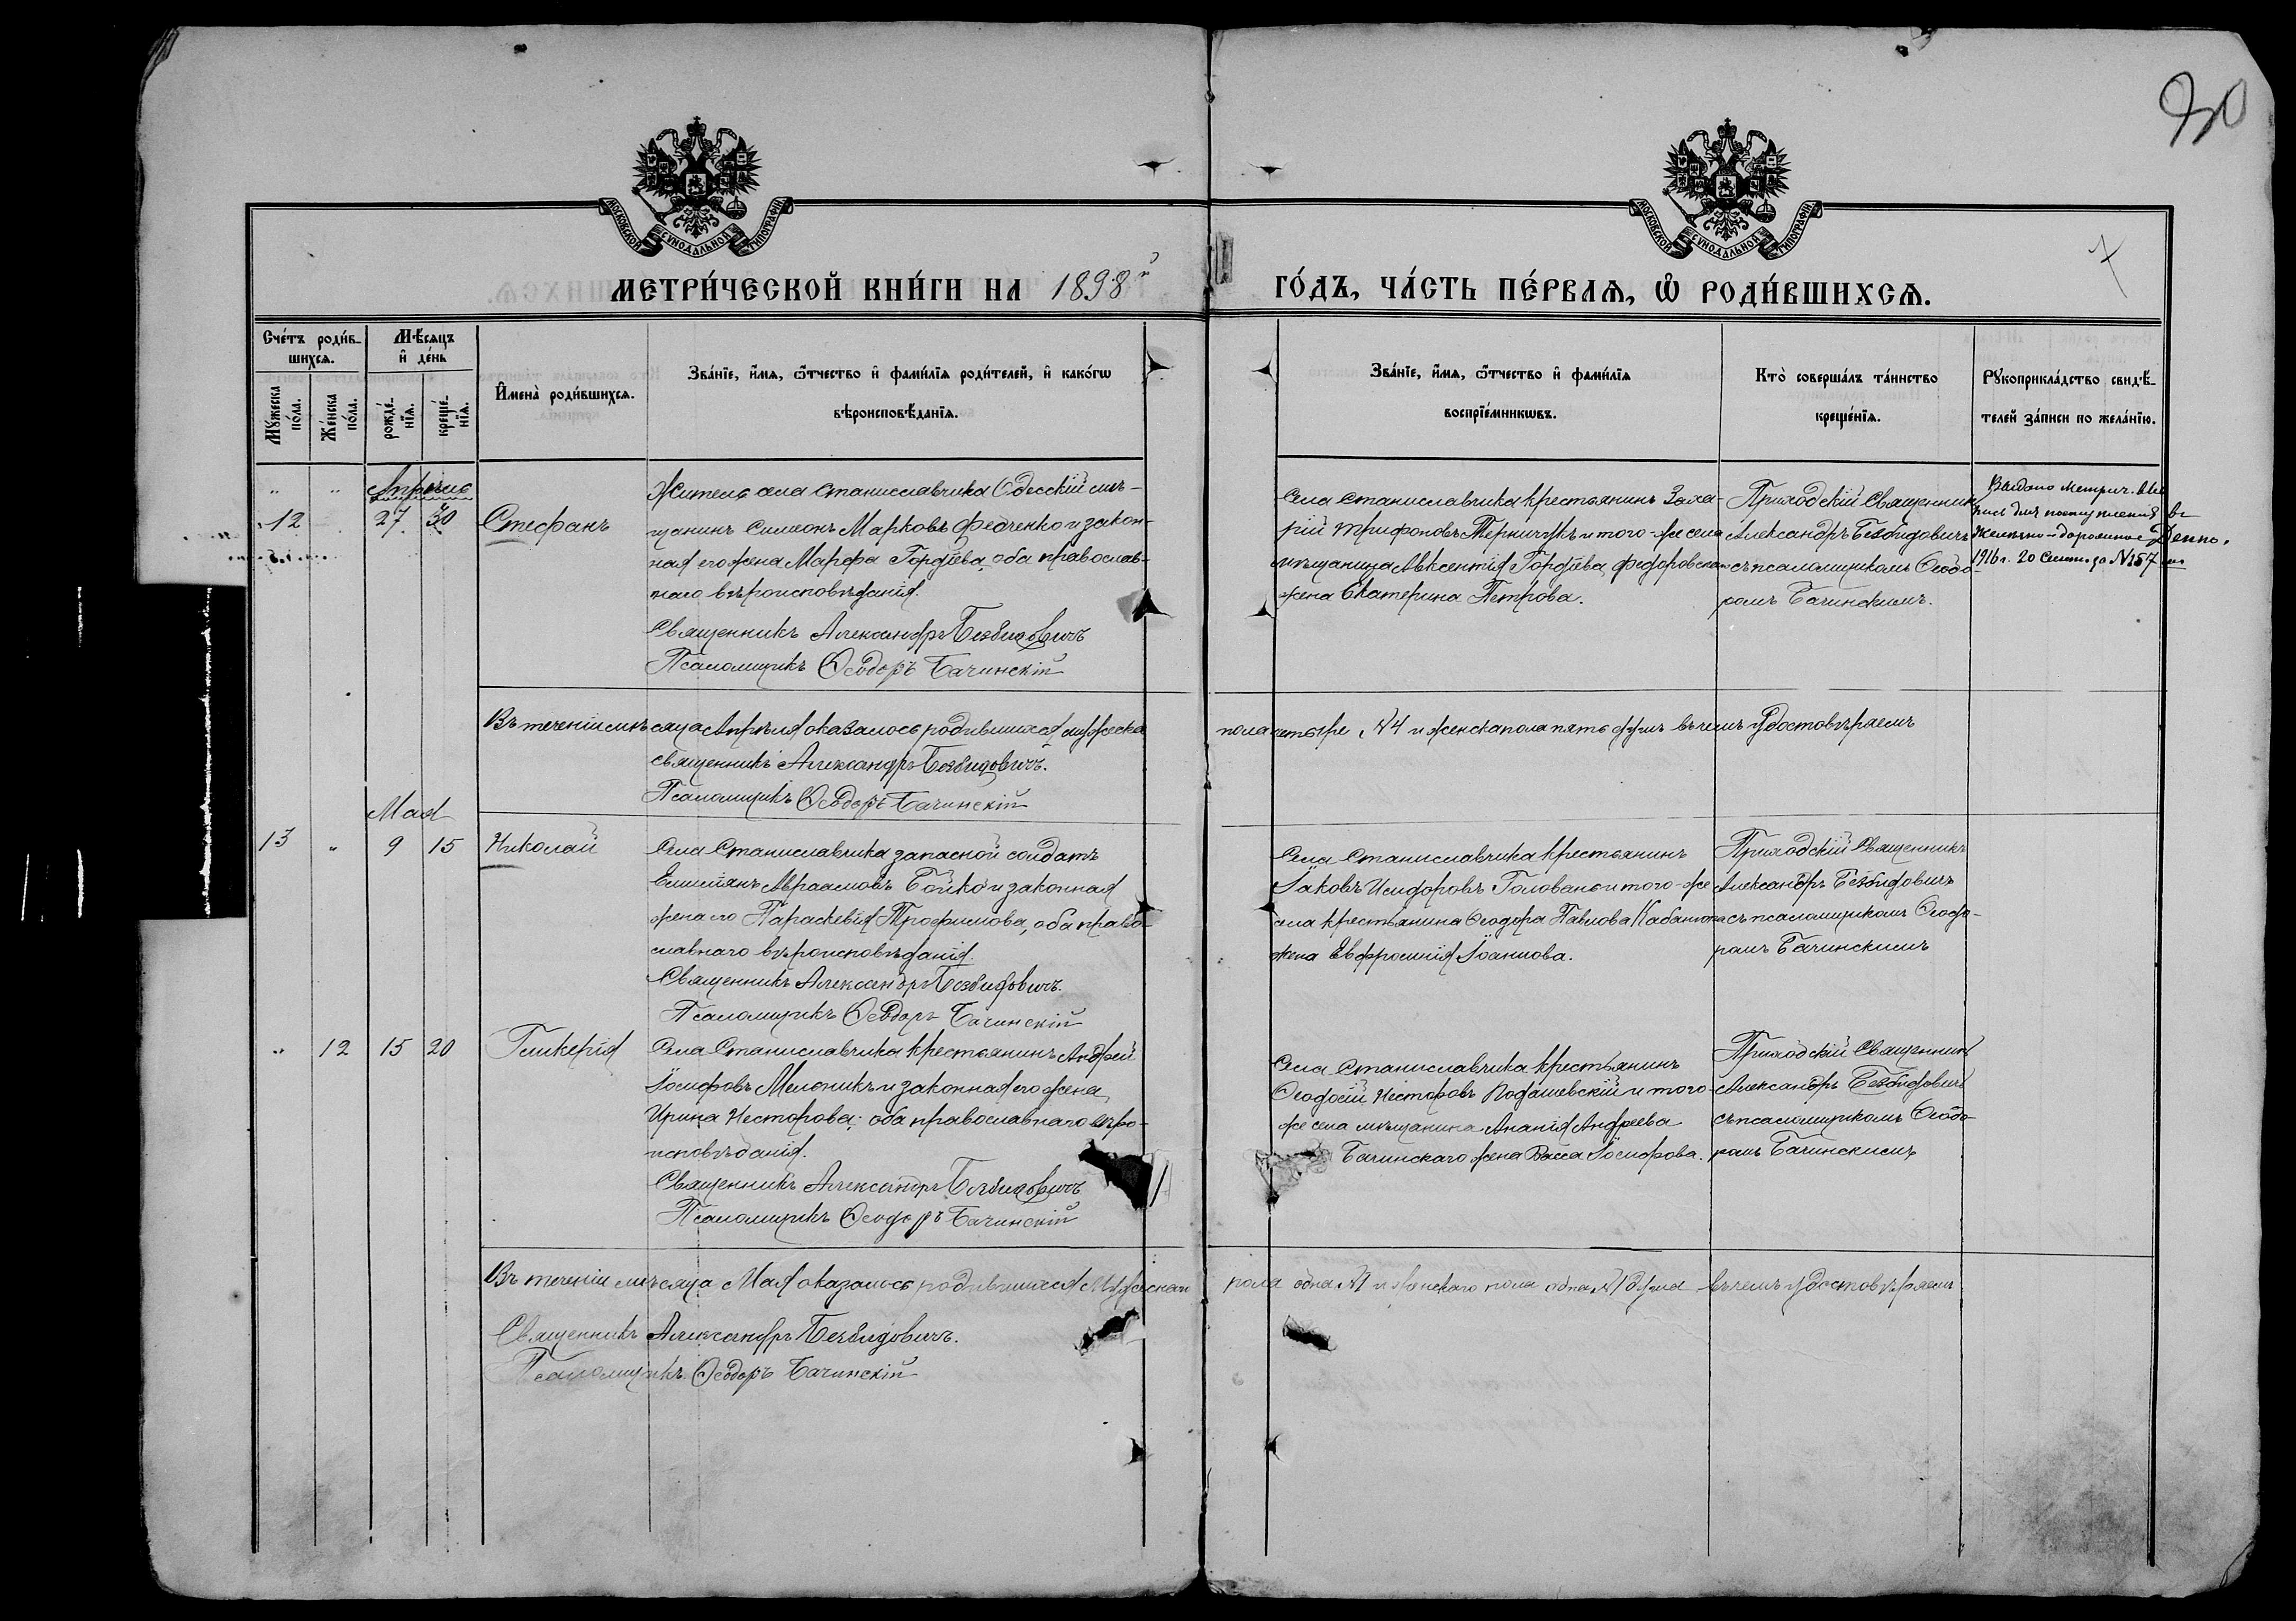 30
7
МОСКОВСКОЙ СѴНОДАЛЬНОЙ ТИПОГРАФІИ
МОСКОВСКОЙ СѴНОДАЛЬНОЙ ТИПОГРАФІИ
МЕТРИ́ЧЕСКОЙ КНИ́ГИ НА 1898й
ГО́ДЪ, ЧА́СТЬ ПЕ́РВАѦ, Ѡ РОДИ́ВШИХСѦ.
Сче́тъ роди́в-
шихсѧ.
Мꙋжеска
по́ла.
Же́нска
по́ла.
Мѣ́сѧцъ
и҆ де́нь
рожде́-
нїѧ.
креще́-
нїѧ.
И҆мена̀ роди́вшихсѧ.
Зва́нїе, и҆́мѧ, ѻ҆́тчество и҆ фами́лїѧ роди́телей, и҆ како́гѡ
вѣроисповѣ́данїѧ.
Зва́нїе, и҆́мѧ, ѻ҆́тчество и҆ фами́лїѧ
воспрїе́мникѡвъ.
Кто̀ соверша́лъ та́инство
креще́нїѧ.
Рꙋкоприкла́дство свидѣ́-
телей за́писи по жела́нїю.
" " Апрѣля
12 27 30 Стефанъ
Житель села Станиславчика Одесскій мѣ-
щанинъ Симеонъ Марковъ Федченко и закон-
ная его жена Марфа Гордіева, оба православ-
наго вѣроисповѣданія.
Священникъ Александръ Безвидовичъ
Псаломщикъ Ѳеодоръ Бачинскій
Села Станиславчика крестьянинъ Заха-
рій Трифоновъ Терничукъ и того-же села
мѣщанина Авксентія Гордіева Федоровскаго
жена Екатерина Петрова.
Приходскій Священникъ
Александръ Безвидовичъ
съ псаломщикомъ Ѳеодо-
ромъ Бачинскимъ.
Выдано метрич. вы
пись для поступленія въ
Желѣзно-дорожное Депо.
1916 г. 20 Сент. за № 57
Въ теченіи мѣсяца Апрѣля оказалось родившихся мужеска
пола четыре №4 и женска пола пять душъ въ чемъ удостовѣряемъ
священникъ Александръ Безвидовичъ.
Псаломщикъ Ѳеодоръ Бачинскій
Мая
13 " 9 15 Николай
Села Станиславчика запасной солдатъ
Емиліянъ Авраамовъ Бойко и законная
жена его Параскевія Трофимова, оба право-
славнаго вѣроисповѣданія.
Священникъ Александръ Безвидовичъ.
Псаломщикъ Ѳеодоръ Бачинскій
Села Станиславчика крестьянинъ
Іаковъ Исидоровъ Голованъ и того-же
села крестьянина Ѳеодора Павлова
жена Евфросинія Іоаннова.
Приходскій Священникъ
Александръ Безвидовичъ
съ псаломщикомъ Ѳеодо-
ромъ Бачинскимъ
" 12 15 20 Гликерія
Села Станиславчика крестьянинъ Андрей
Іосифовъ Мельникъ и законная его жена
Ирина Несторова; оба православнаго вѣро-
исповѣданія.
Священникъ Александръ Безвидовичъ
Псаломщикъ Ѳеодоръ Бачинскій
Села Станиславчика крестьянинъ
Ѳеодосій Несторовъ Подашевскій и того-
же села мѣщанина Ананія Андреева
Бачинскаго жена Васса Іосифова.
Приходскій Священникъ
Александръ Безвидовичъ
съ псаломщикомъ Ѳеодо-
ромъ Бачинскимъ
Въ теченіи мѣсяца Мая оказалось родившихся мужескаго
пола одна №1 и женскаго пола одна №1 душа въ чемъ удостовѣряемъ
Священникъ Александръ Безвидовичъ.
Псаломщикъ Ѳеодоръ Бачинскій